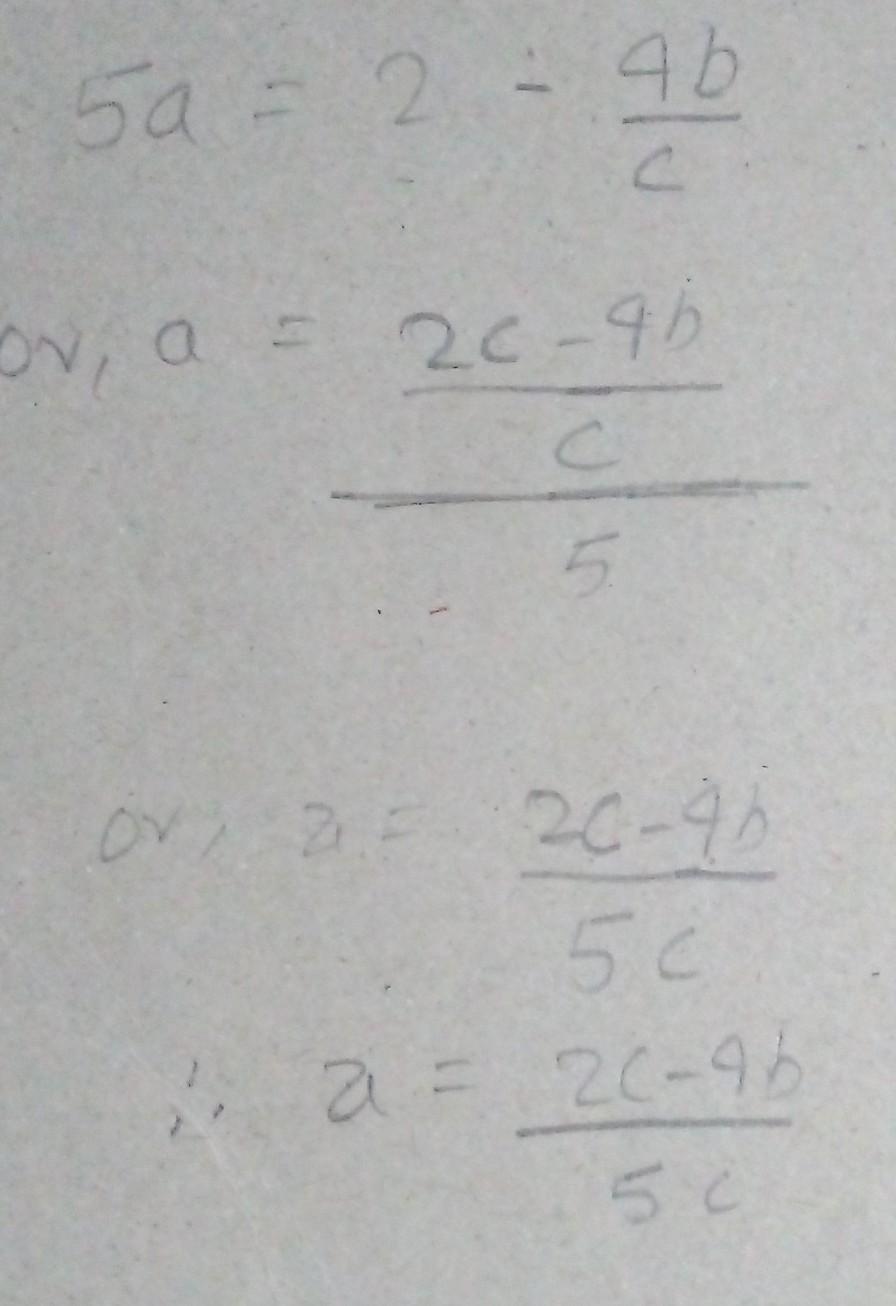 5a = 2 - 4b/c
or, a = 2c-4b/c/5
or, a = 2c-4b/5c
∴ a = 2c-4b/5c